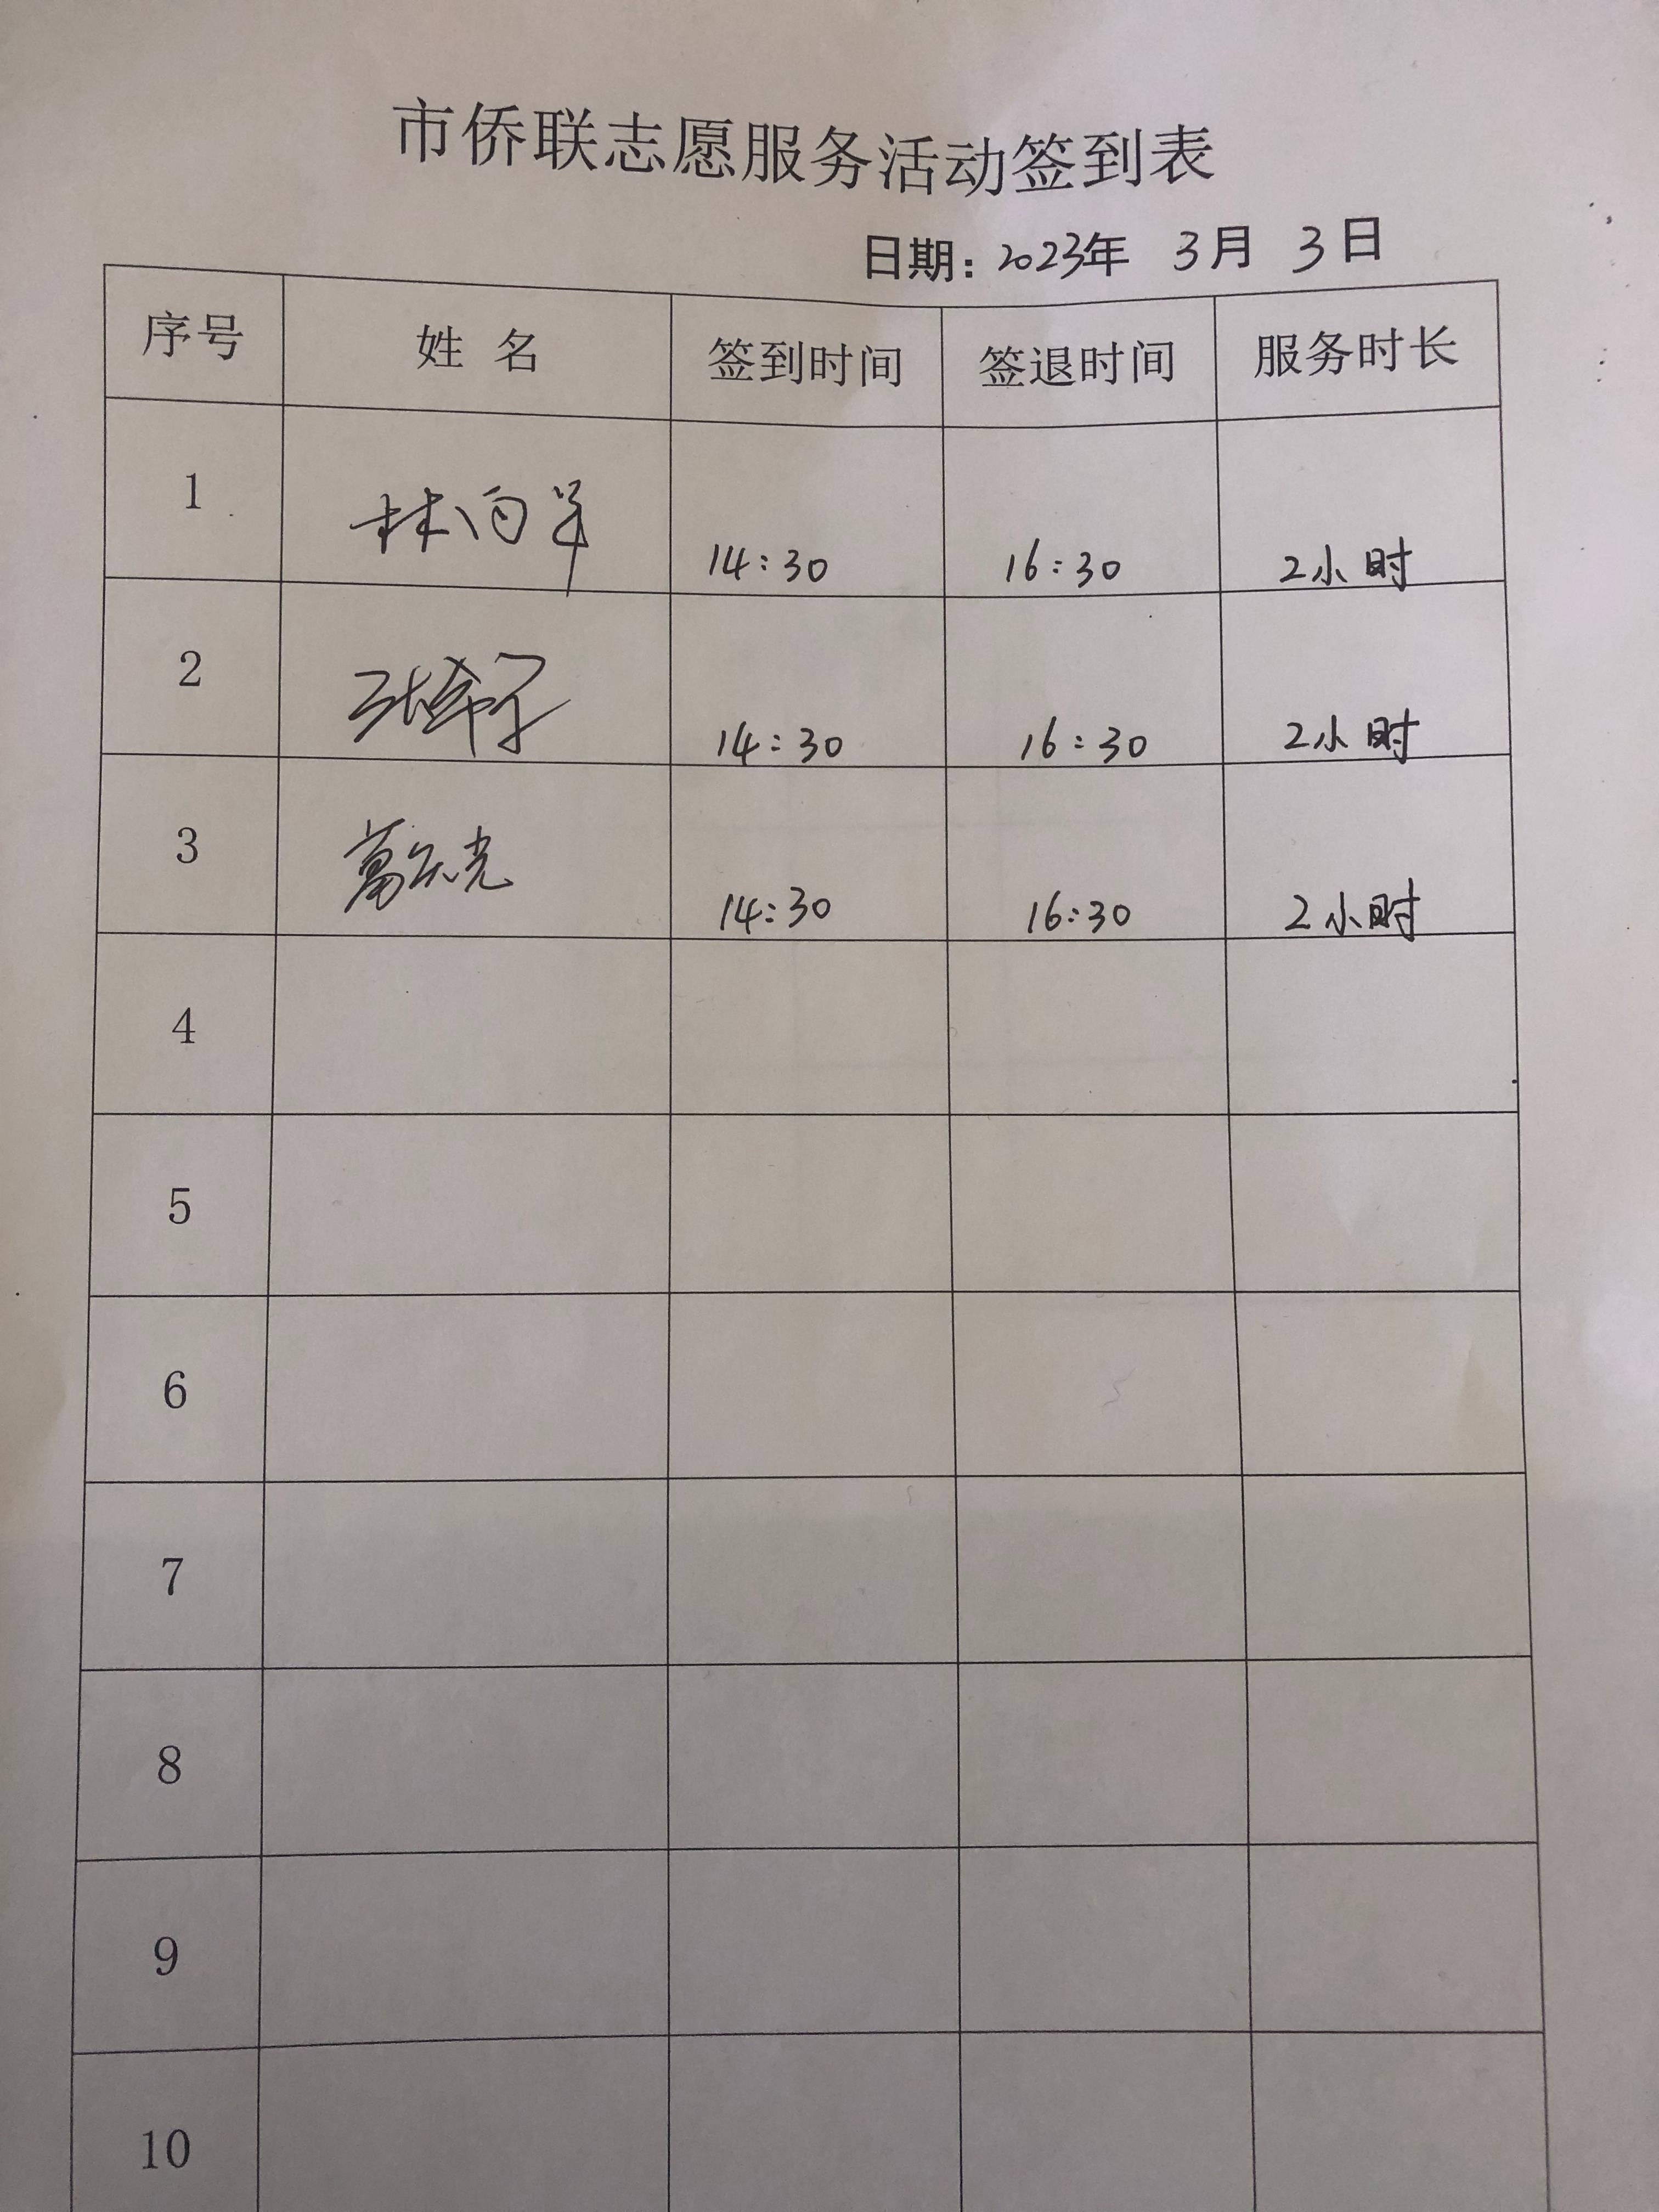 市侨联志愿服务活动签到表
日期：2023年 3月 3日
序号 姓 名 签到时间 签退时间 服务时长
1 林向 14:30 16:30 2小时
2 张 子 14:30 16:30 2小时
3 葛 光 14:30 16:30 2小时
4
5
6
7
8
9
10